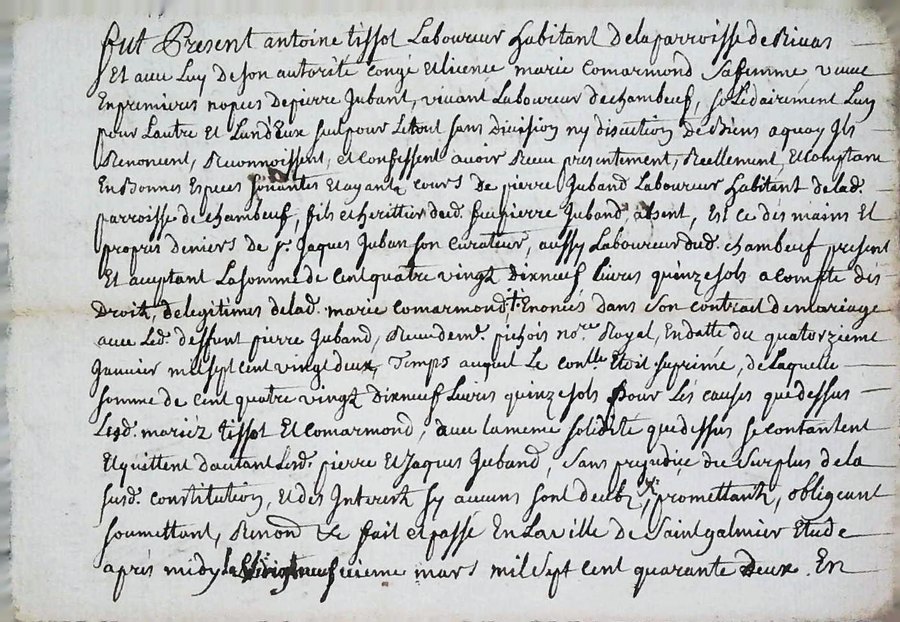 fut Present antoine tissot Laboureur habitant delaparroisse de Rivas
Et avec Luy de son autorité Congé et licence marie Comarmond Safemme, veuve
Enpremieres nopces Depierre Juband, vivant Laboureur dechambeuf, solédairement Lun
pour Lautre Et LundEux seul pour Letout sans Division ny discution De Biens aquoy Ils
Renoncent, Reconnoissent, et Confessent avoir Receu presentement, Réellement, Et Comptant
En Bonnes Especes sonantes Et ayantz cours de pierre Juband Laboureur habitant delad.
parroisse de chambeuf, fils et heritier dud. feu pierre Juband, absent, Et Ce dés mains Et
propres deniers de sr. Jaques Juban son Curateur, aussy Laboureur dud. chambeuf present
Et aceptant Lasomme de Cent quatre vingt dixneuf livres quinze sols a compte dés
Droits, de legitimes delad. marie comarmond Enoncés dans son contract demariage
avec Led. deffunt pierre Juband, Receu de me. nore. Royal, En datte du quatorzieme
Janvier mil sept cent vingt deux, Temps auquel Le conlle. Etoit suprimé, de Laquelle
somme de Cent quatre vingtz Dixneuf Livres quinze sols pour Lés causes que dessus
Lesd. mariéz tissot Et Comarmond, avec la meme solidité que dessus se contantent
Et quittent dautant Lesd. pierre Et Jaques Juband, sans prejudice du Surplus de la
susd. constitution, Et des Interestz sy aucuns sont deubz, promettantz, obligeant
soumettant, Renond &c fait et passé En La ville de Saint galmier Etude
aprés midy mars mil sept cent quarante Deux. En